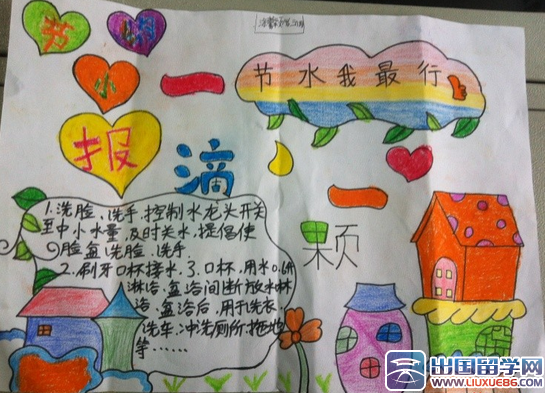 节 水
小
报
节水我最行
一滴水 一颗心
1.洗脸、洗手、控制水龙头开关
至中小水量,及时关水,提倡使
脸盆洗脸、洗手.
2.刷牙口杯接水.3.口杯,用水0.6升
淋浴、盆浴间断放水淋
浴、盆浴后,用于洗衣、
洗车、冲洗厕所、拖地
等……
出国留学网
WWW.LIUXUE86.COM